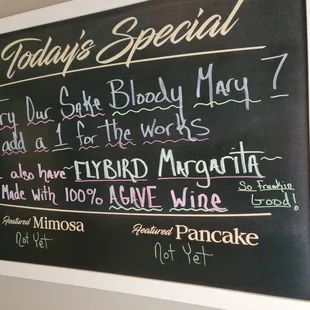 Today's Special
ry Our Sake Bloody Mary 7
add a 1 for the works
also have ~FLYBIRD Margarita~
Made with 100% AGAVE Wine
So Freakin
Good!
Featured Mimosa
Not Yet
Featured Pancake
Not Yet